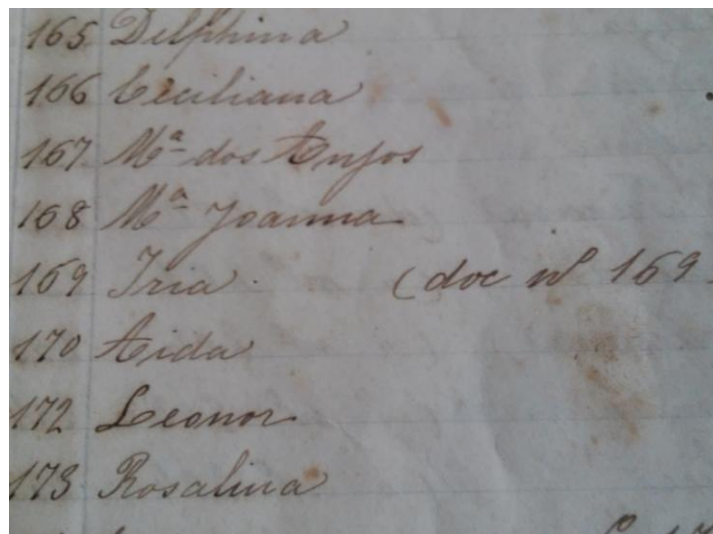 165 Delphina
166 Ceciliana
167 Mª dos Anjos
168 Mª Joanna
169 Iria (doc nº 169
170 Aida
172 Leonor
173 Rosalina